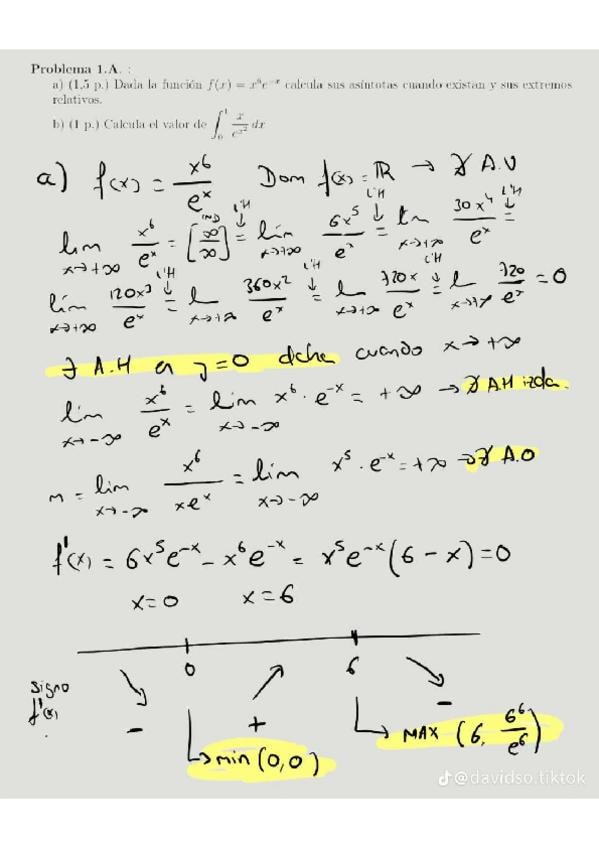 Problema 1.A. :
a) (1,5 p.) Dada la función f(x) = x⁶e⁻ˣ calcula sus asíntotas cuando existan y sus extremos
relativos.
b) (1 p.) Calcula el valor de ∫₀¹ x/e^(x²) dx
a) f(x) = x⁶/eˣ Dom f(x) = ℝ → ∄ A.V
lim x→+∞ x⁶/eˣ = [∞/∞] IND = L'H lim x→+∞ 6x⁵/eˣ = L'H lim x→+∞ 30x⁴/eˣ = L'H
lím x→+∞ 120x³/eˣ = L'H l x→+∞ 360x²/eˣ = L'H l x→+∞ 720x/eˣ = L'H l x→+∞ 720/eˣ = 0
∃ A.H en y=0 dcha cuando x→+∞
lím x→-∞ x⁶/eˣ = lím x→-∞ x⁶·e⁻ˣ = +∞ → ∄ A.H izda.
m = lim x→-∞ x⁶/xeˣ = lím x→-∞ x⁵·e⁻ˣ = +∞ → ∄ A.O
f'(x) = 6x⁵e⁻ˣ - x⁶e⁻ˣ = x⁵e⁻ˣ(6-x) = 0
x=0 x=6
0 6
signo
f'(x) - + -
MAX (6, 6⁶/e⁶)
min (0,0)
@davidso.tiktok